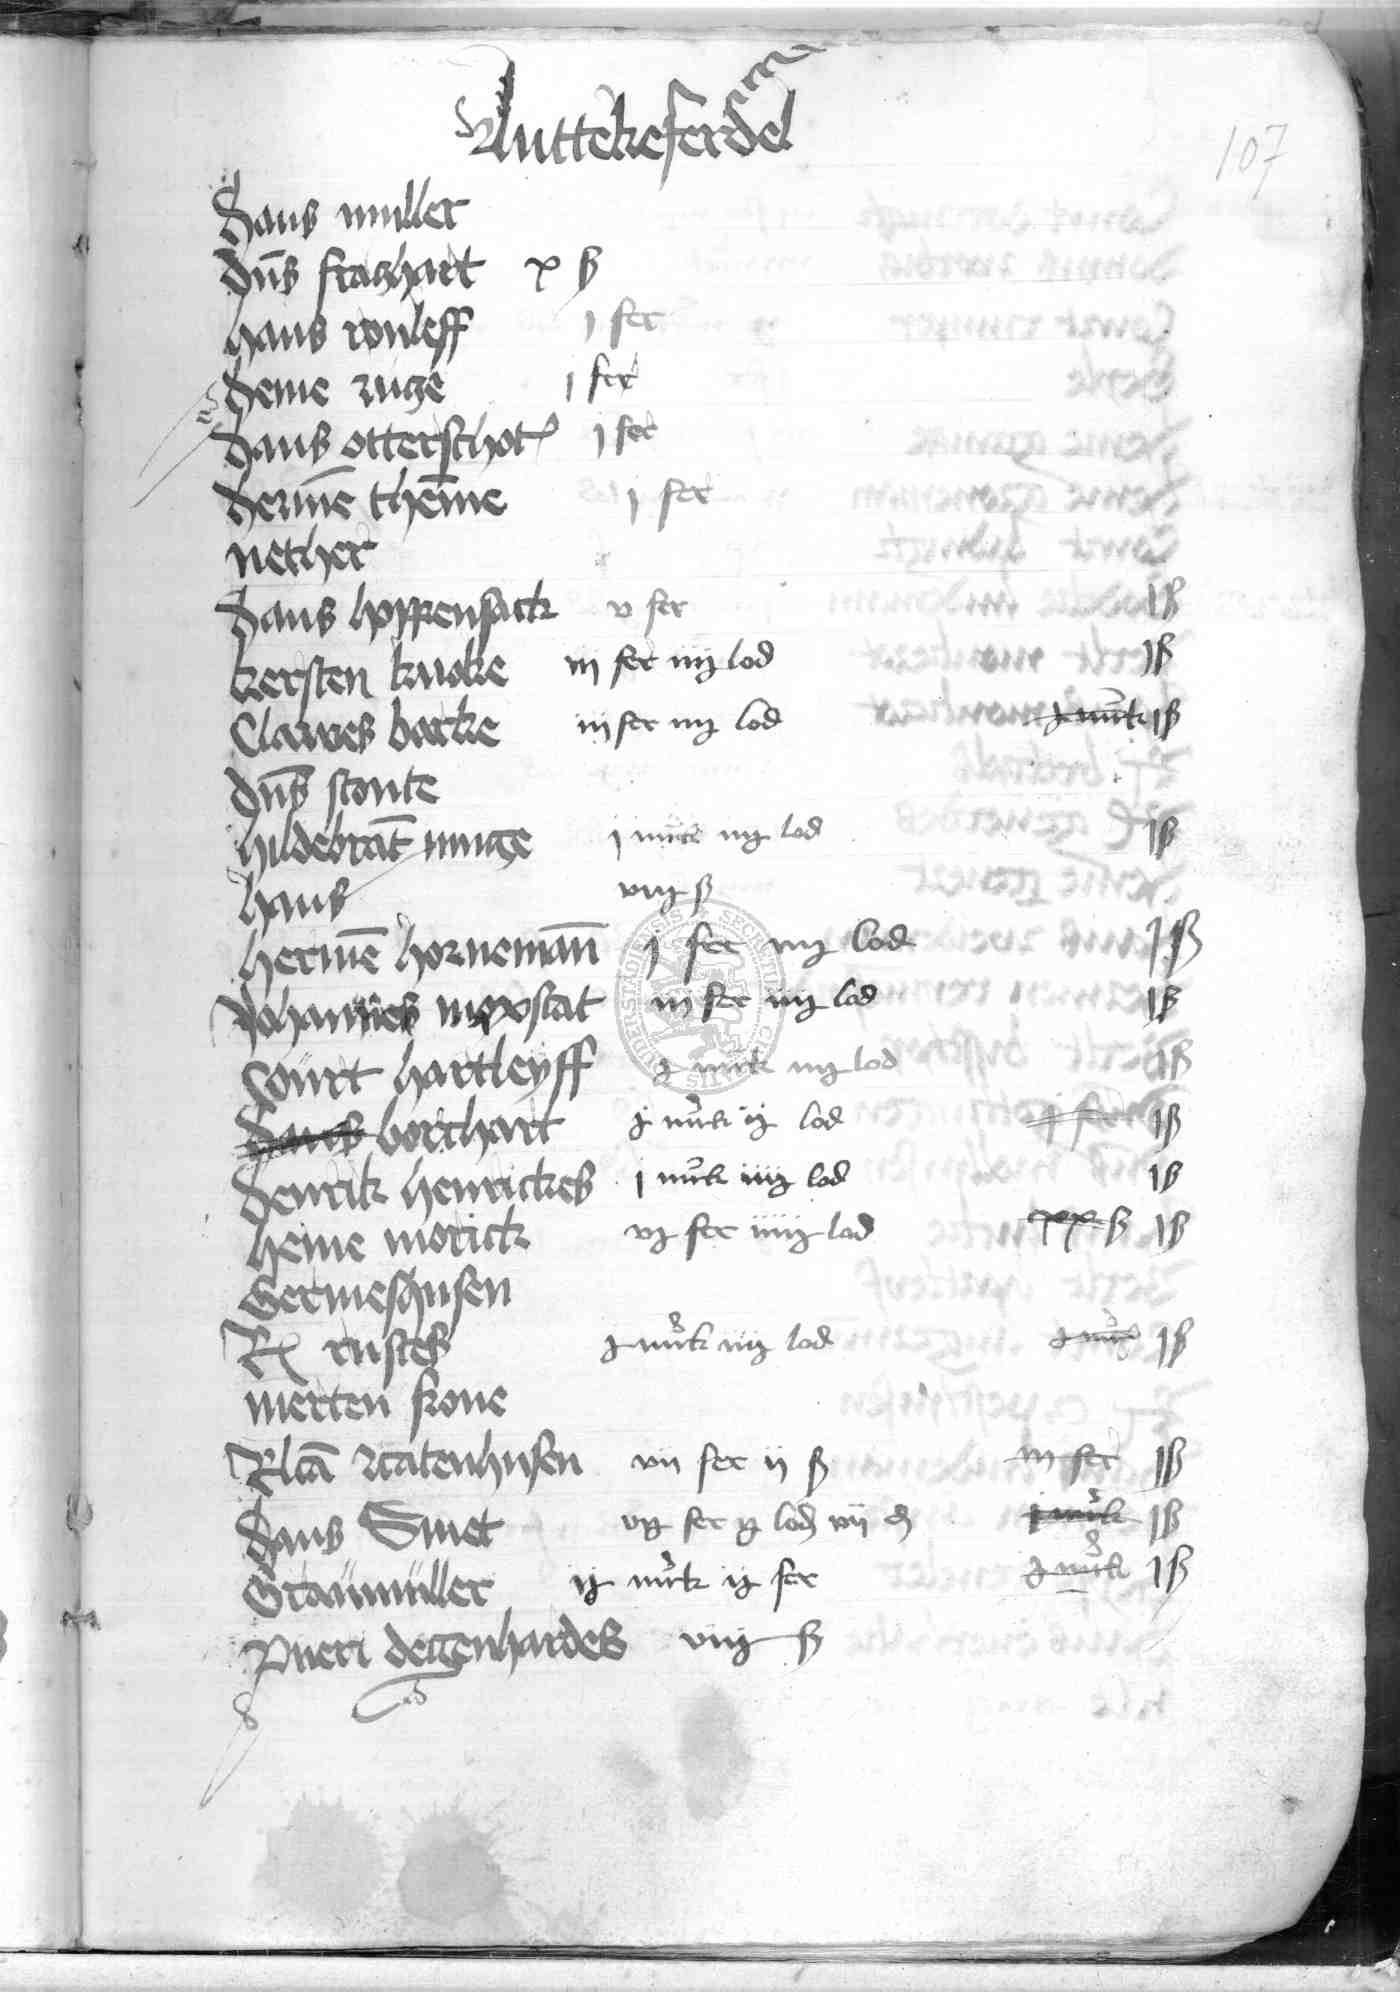 Kuttekeferdel
107
Hans muller
dns franhart x ß
hans ronleff j fer
Heine ruge j fer
Hans otterschot j fer
Herme theme j fer
nether
Hans hoppensack v fer jß
kersten knoke iij fer iiij lod jß
Clawes barke iij fer iiij lod jß
dns stonte
hildebrat nunge j mrk iiij lod jß
hans viij ß
herme horneman j fer iiij lod jß
Johannes moxstat iij fer iiij lod jß
Court hartleyff j mrk iiij lod jß
Hans borchart j mrk ij lod j fer jß
Henrik henrickes j mrk iiij lod jß
heine morick vj fer iiij lod xx ß jß
Germeshusen
Rx rustes j mrk iiij lod j mrk jß
merten krone
Rlca Katenhusen vij fer ij ß iij fer jß
Hans Smet vj fer ij lod vij d j mrk jß
Graumuller ij mrk ij fer j mrk jß
Pueri degenhardes viij ß